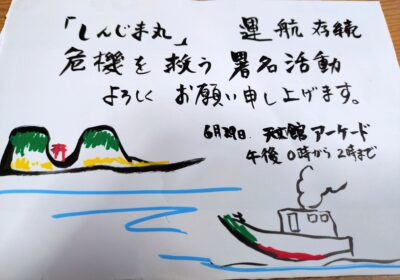 「しんじま丸」 運航存続
危機を救う署名活動
よろしくお願い申し上げます。
6月29日 天文館アーケード
午後0時から2時まで